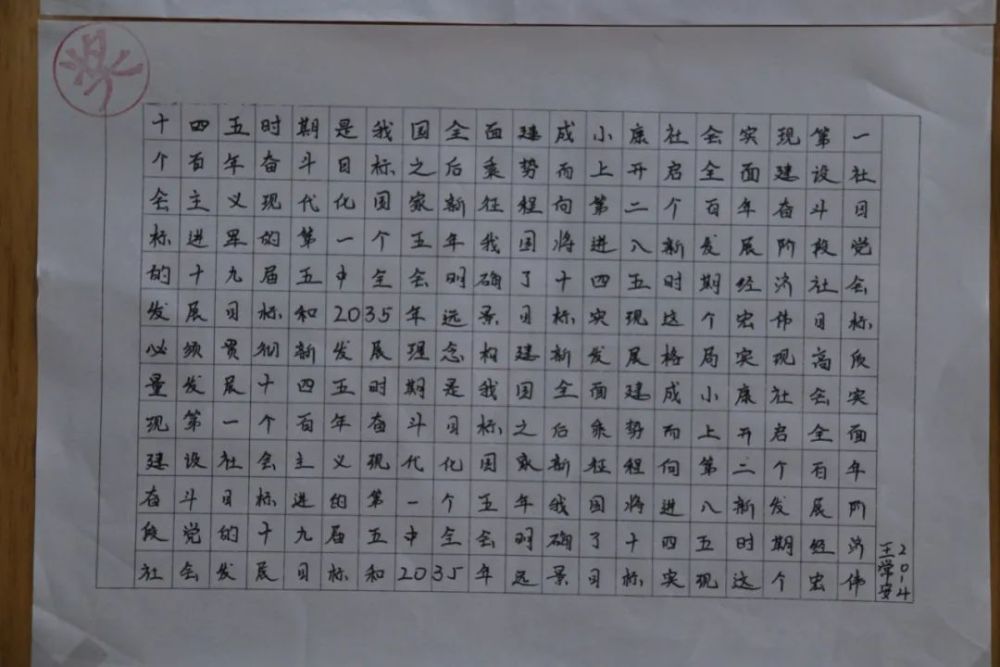 奖
十四五时期是我国全面建成小康社会实现第一
个百年奋斗目标之后乘势而上开启全面建设社
会主义现代化国家新征程向第二个百年奋斗目
标进军的第一个五年我国将进入新发展阶段党
的十九届五中全会明确了十四五时期经济社会
发展目标和2035年远景目标实现这个宏伟目标
必须贯彻新发展理念构建新发展格局实现高质
量发展十四五时期是我国全面建成小康社会实
现第一个百年奋斗目标之后乘势而上开启全面
建设社会主义现代化国家新征程向第二个百年
奋斗目标进的第一个五年我国将进入新发展阶
段党的十九届五中全会明确了十四五时期经济
社会发展目标和2035年远景目标实现这个宏伟
王常安
2014